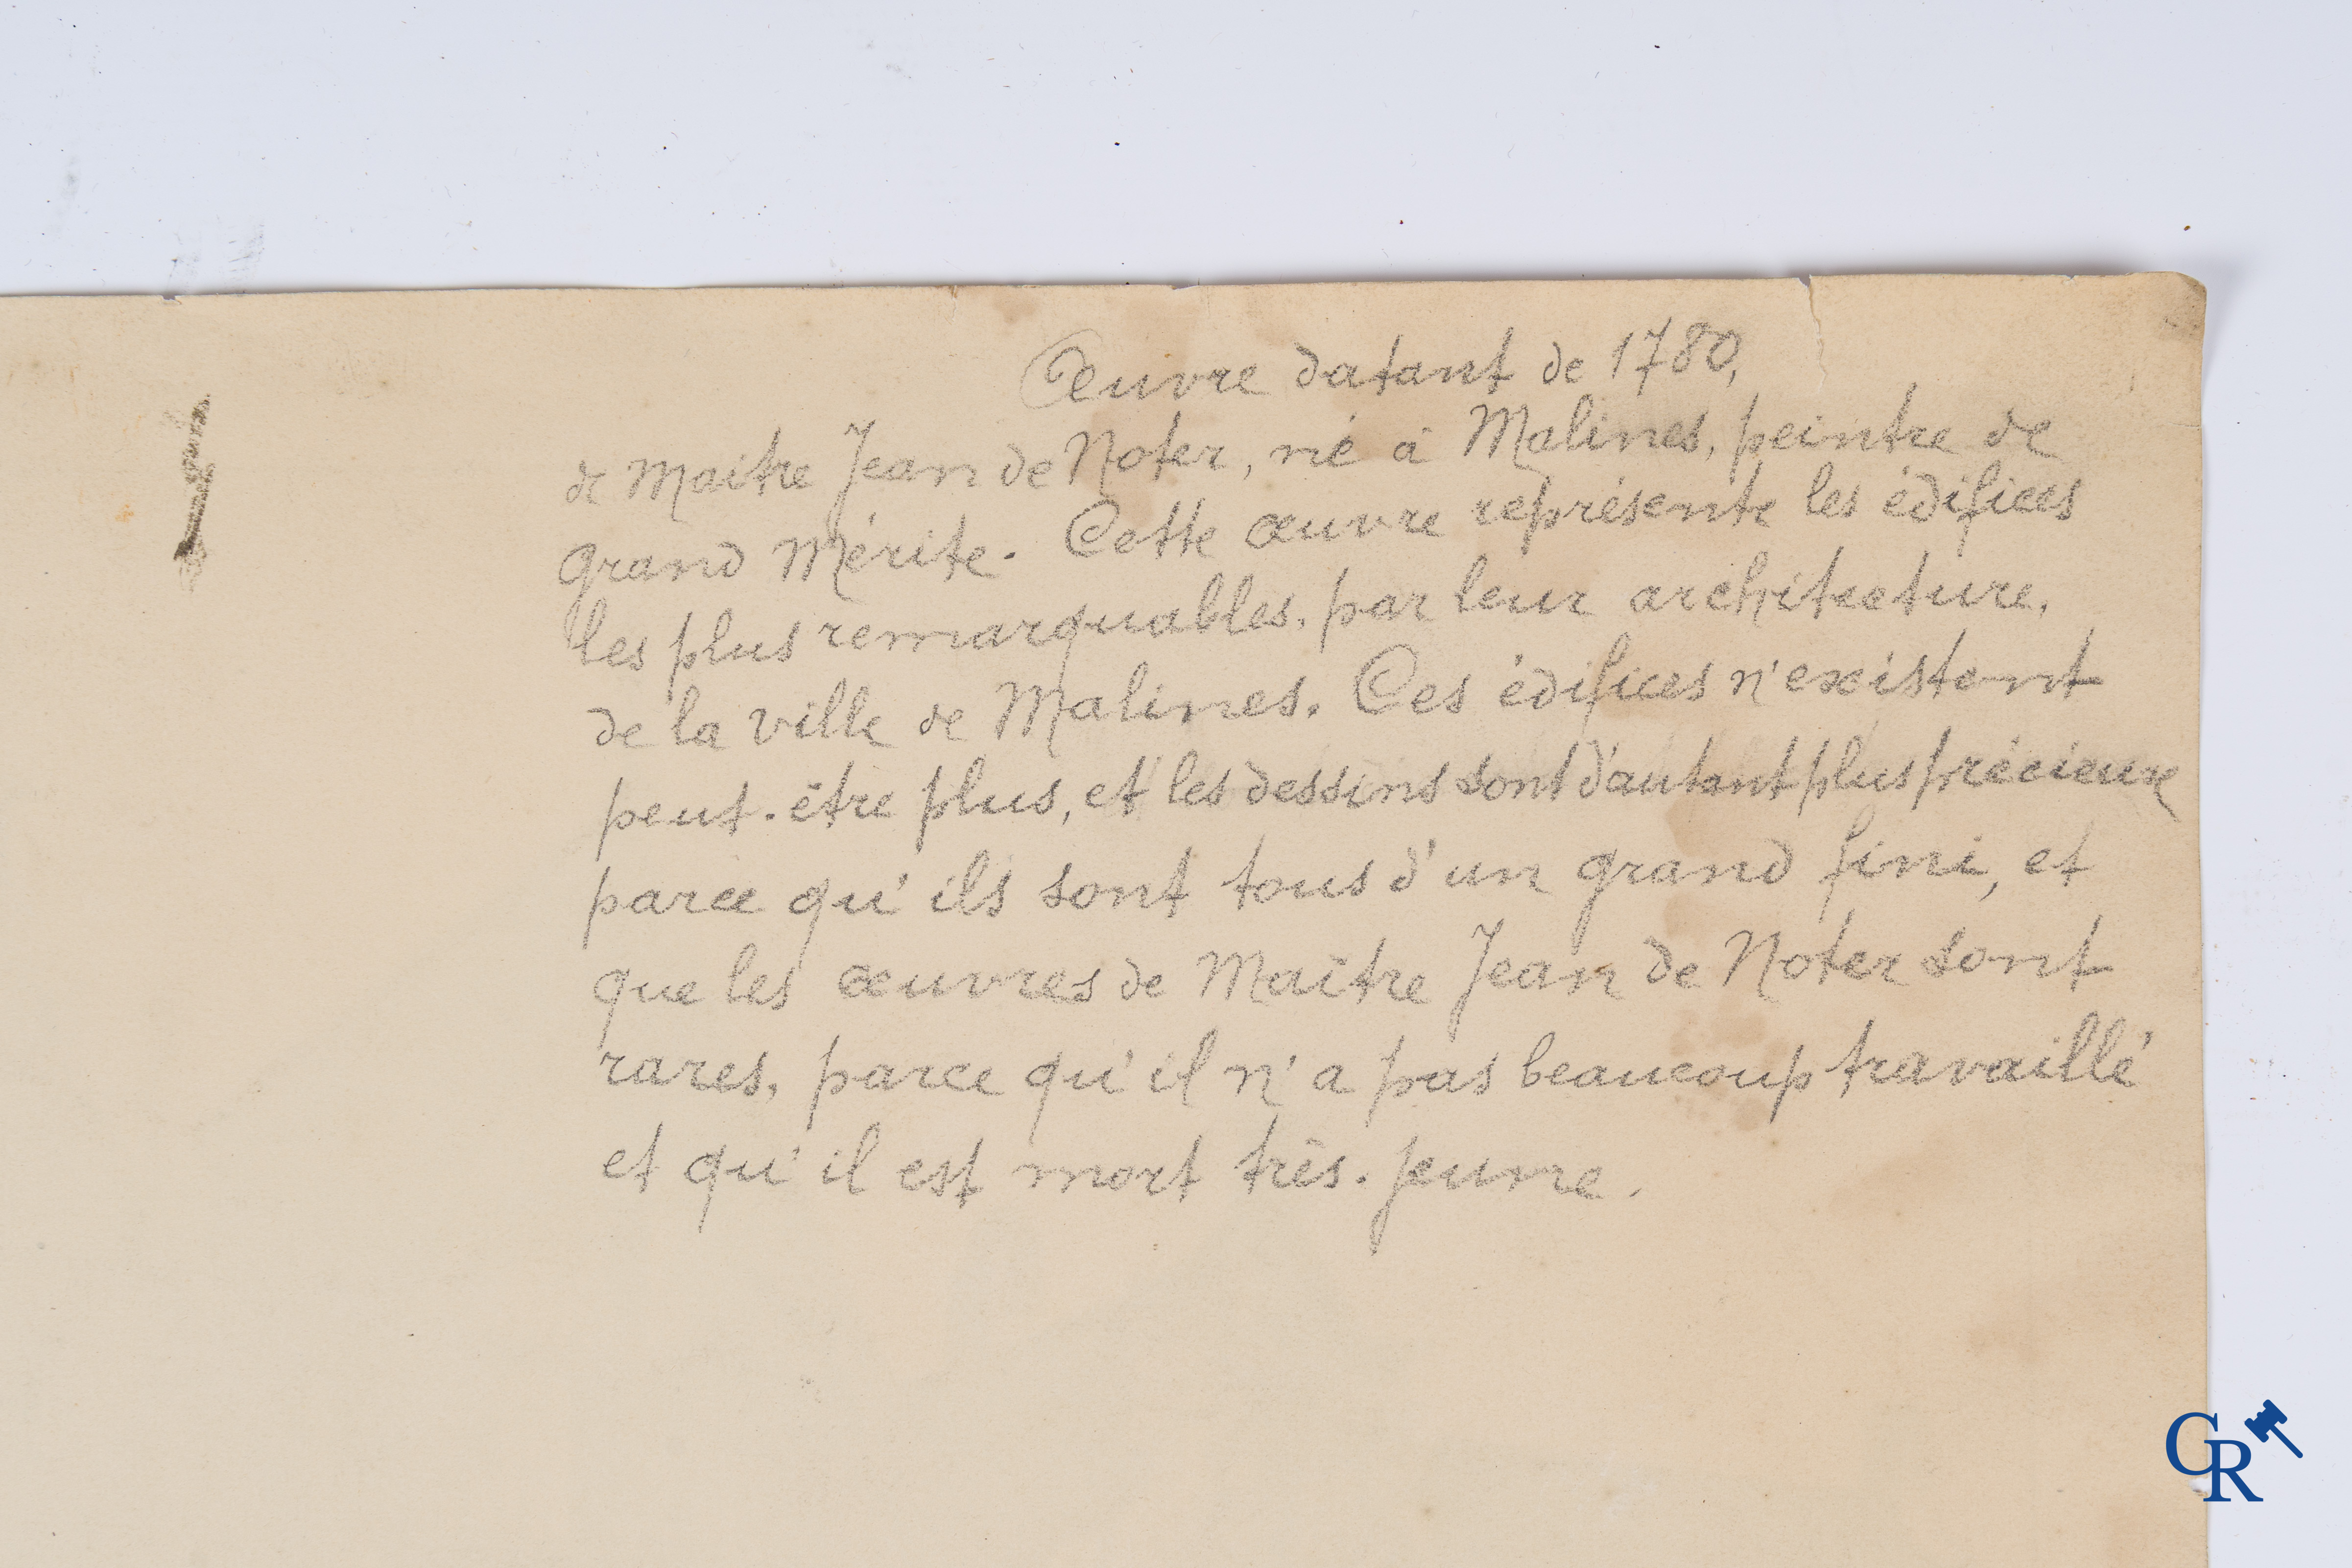 Œuvre datant de 1780,
de Maitre Jean de Noter, né à Malines, peintre de
grand Mérite. Cette œuvre représente les édifices
les plus remarquables, par leur architecture,
de la ville de Malines. Ces édifices n'existent
peut-être plus, et les dessins sont d'autant plus précieux
parce qu'ils sont tous d'un grand fini, et
que les œuvres de Maître Jean de Noter sont
rares, parce qu'il n'a pas beaucoup travaillé
et qu'il est mort très-jeune.
CR